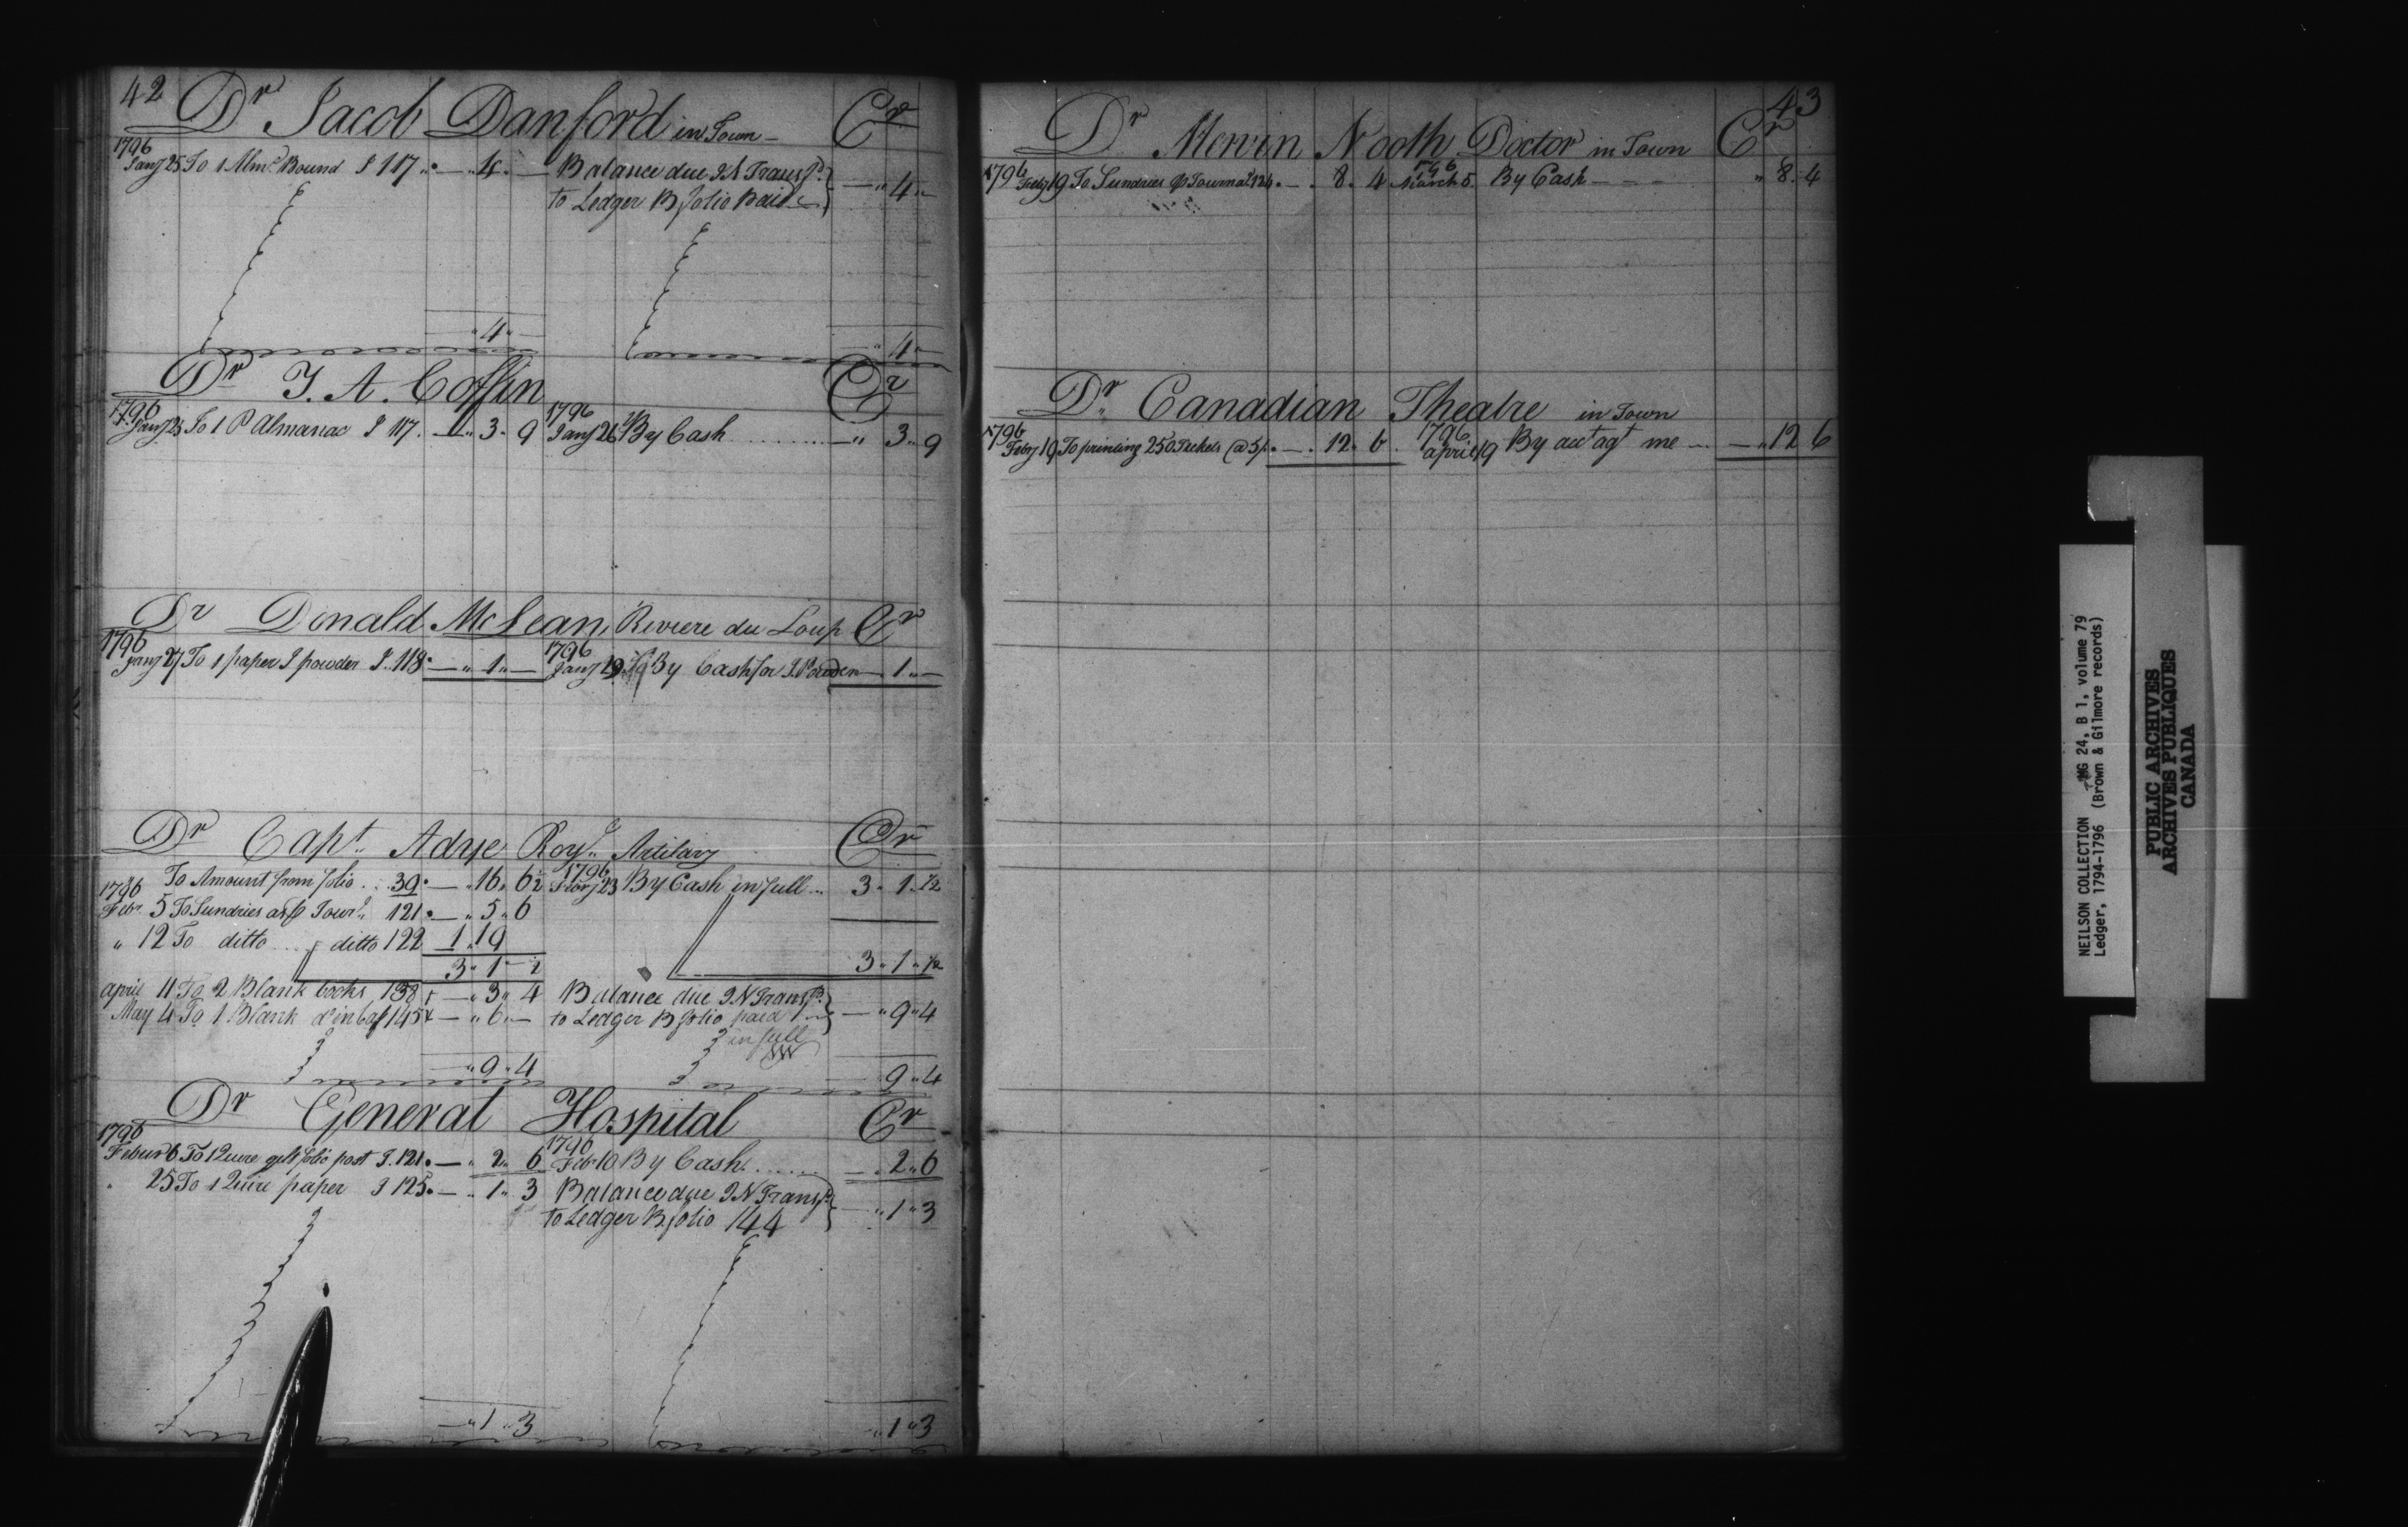 42 Dr Jacob Danford in Town Cr
1796
Jany 25 To 1 Almc Bound J 117 " — " 4 " — Balance due JN Transfd
to Ledger B folio Paid — " 4 " —
" 4 " — " 4 " —
Dr J. A. Coffin Cr
1796 1796
Jany 25 To 1 P Almanac J 117 . — " 3 " 9 Jany 26 By Cash — " 3 " 9
Dr Donald McLean, Riviere du Loup Cr
1796 1796
Jany 27 To 1 paper I powder J. 118 — " 1 " — Jany By Cash for I. Powder — 1 " —
Dr Capt. Adye Royl. Artilary Cr
1796
To Amount from folio . . 39 . — " 16 " 6½ 23 By Cash in full .. 3 " 1 " ½
1796
Febr. 5 To Sundries as p Jourl. 121 . — " 5 " 6
" 12 To ditto ditto 122 1 " 19
3 " 1 " ½ 3 " 1 " ½
april 11 To 2 Blank books 138 + — " 3 " 4 Balance due JN Transfd
May 4 To 1 Blank do in calf 145 + — " 6 " — to Ledger B folio paid — " 9 " 4
in full
" 9 " 4 9 " 4
Dr General Hospital Cr
1796 1796
Febur 6 To 1 Quire gilt folio post J. 121 . — " 2 " 6 Feb 10 By Cash — " 2 " 6
" 25 To 1 Quire paper J 125 . — " 1 " 3 Balance due JN Transfd
to Ledger B folio 144 " 1 " 3
— " 1 " 3 " 1 " 3
43
Dr Mervin Nooth Doctor in Town Cr
1796 1796
Feby 19 To Sundries p Journal 124 . — . 8 . 4 March 5 By Cash " 8 . 4
Dr Canadian Theatre in Town
1796 1796
Feby 19 To printing 250 Tickets @ 5/ . — . 12 . 6 april 19 By acct agt me — " 12 6
NEILSON COLLECTION MG 24, B 1, volume 79
Ledger, 1794-1796 (Brown & Gilmore records)
PUBLIC ARCHIVES
ARCHIVES PUBLIQUES
CANADA